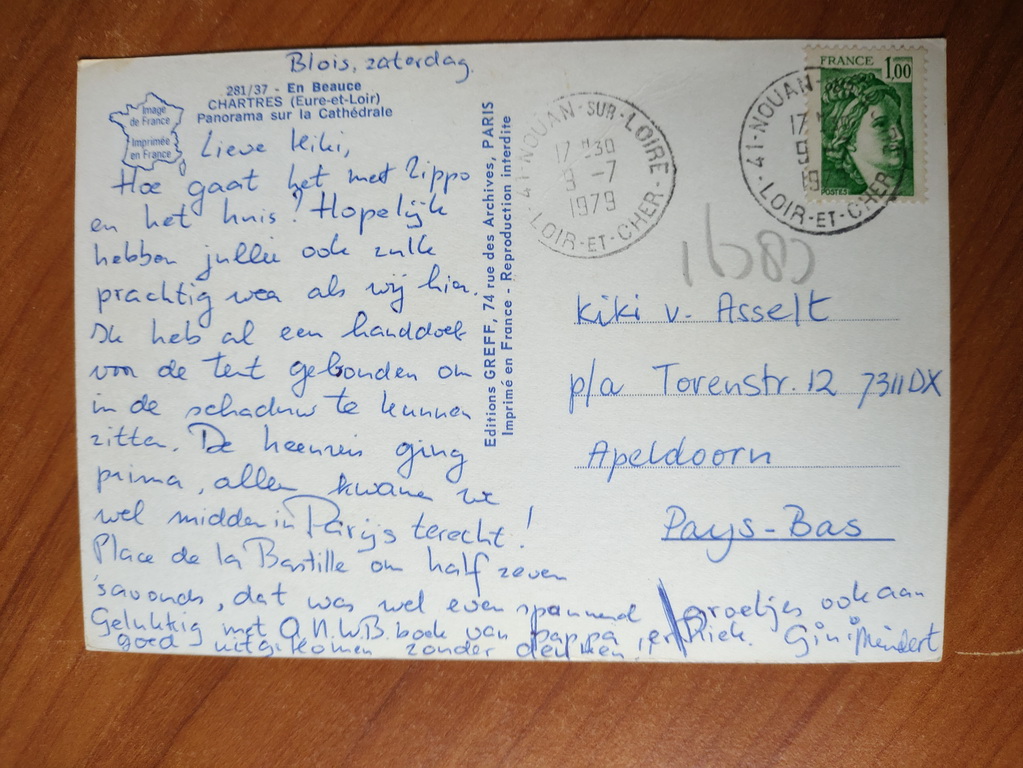 Blois, zaterdag.
281/37 - En Beauce
CHARTRES (Eure-et-Loir)
Panorama sur la Cathédrale
Image
de France
Imprimée
en France
Lieve Kiki,
Hoe gaat het met Zippo
en het huis? Hopelijk
hebben jullie ook zulk
prachtig weer als wij hier.
Ik heb al een handdoek
voor de tent gebonden om
in de schaduw te kunnen
zitten. De heenreis ging
prima, alleen kwamen we
wel midden in Parijs terecht!
Place de la Bastille om half zeven
's avonds, dat was wel even spannend
Gelukkig met A.N.W.B. boek van pappa er
goed uitgekomen zonder deuken!
Editions GREFF, 74 rue des Archives, PARIS
Imprimé en France - Reproduction interdite
41-NOUAN-SUR-LOIRE
17H30
9-7
1979
LOIR-ET-CHER
FRANCE 1,00
POSTES
41-NOUAN
17
9
19
LOIR-ET-CHER
Kiki v. Asselt
p/a Torenstr. 12 7311DX
Apeldoorn
Pays-Bas
groetjes ook aan
Riek. Gini Meindert